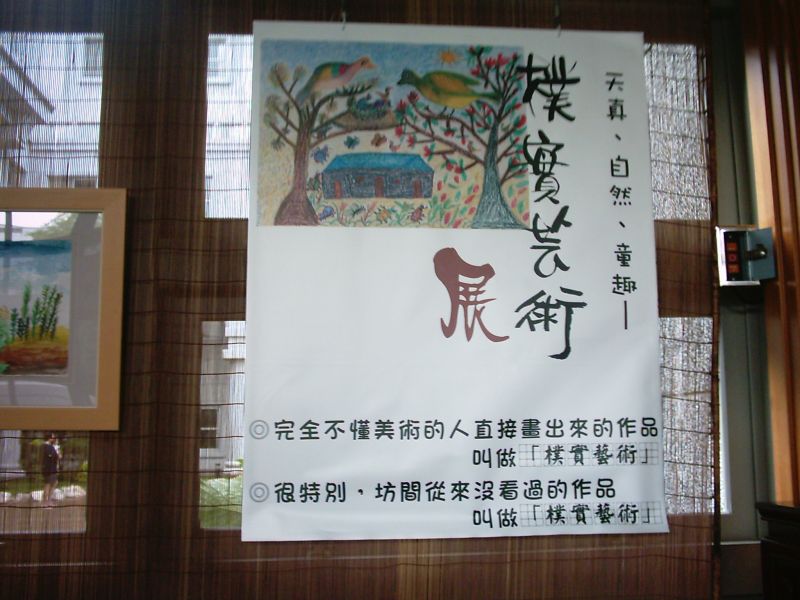 天真、自然、童趣—
樸實芸術
展
◎完全不懂美術的人直接畫出來的作品
叫做「樸實藝術」
◎很特別，坊間從來沒看過的作品
叫做「樸實藝術」